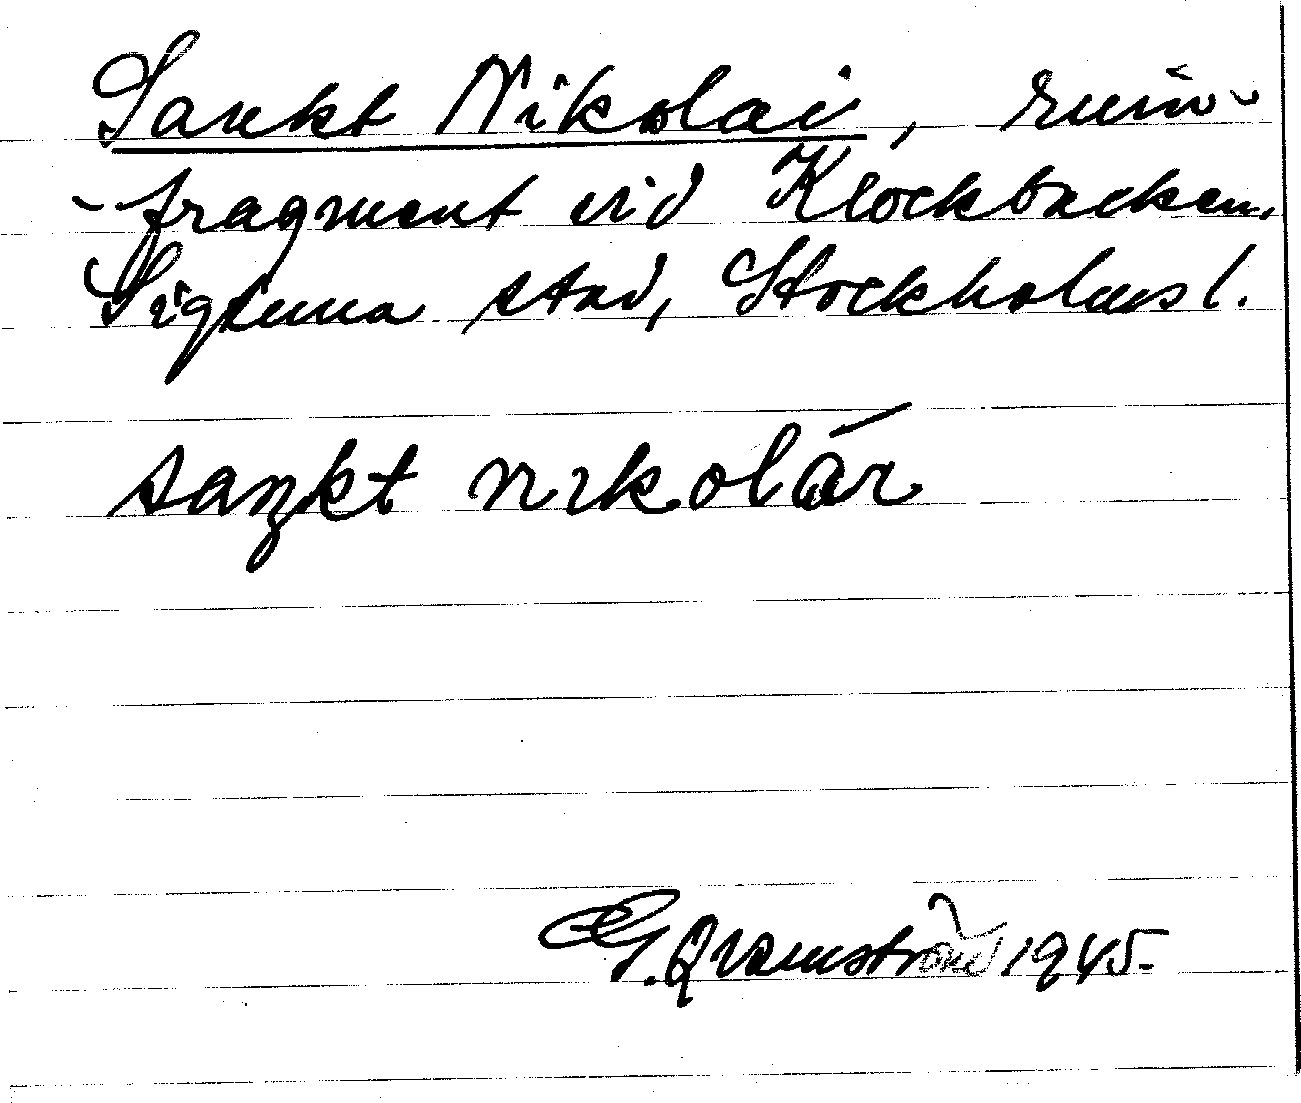 Sankt Nikolai, ruin-
-fragment vid Klockbacken,
Sigtuna stad, Stockholms l.
saŋkt nɪkolár
G. Qvarnström 1945.